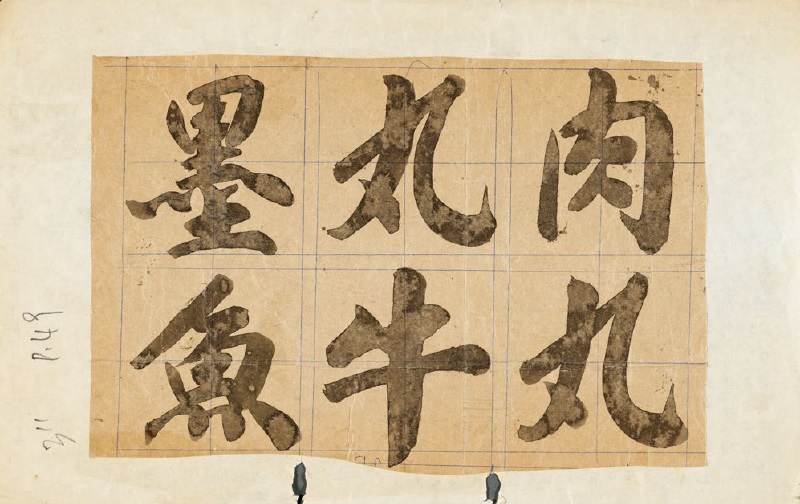 肉丸
丸牛
墨魚
3"
P.49